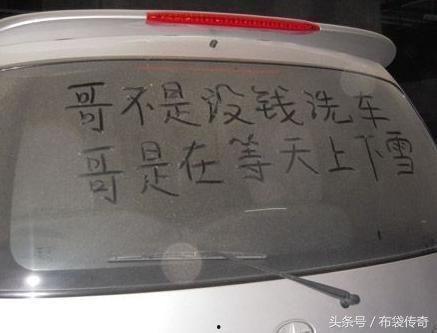 哥不是没钱洗车
哥是在等天上下雪
头条号/布袋传奇